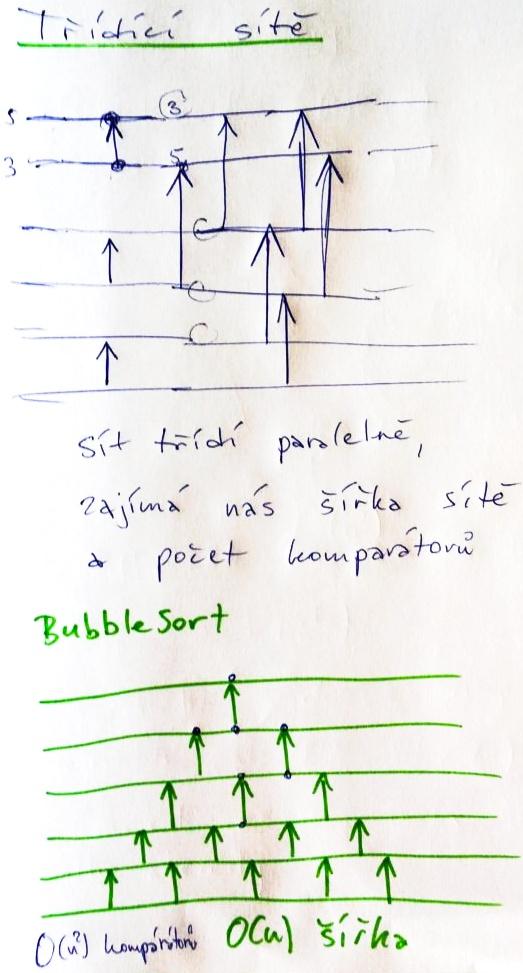 Třídicí sítě
5
3
3
5
síť třídí paralelně,
zajímá nás šířka sítě
a počet komparátorů
BubbleSort
O(n²) komparátorů O(n) šířka